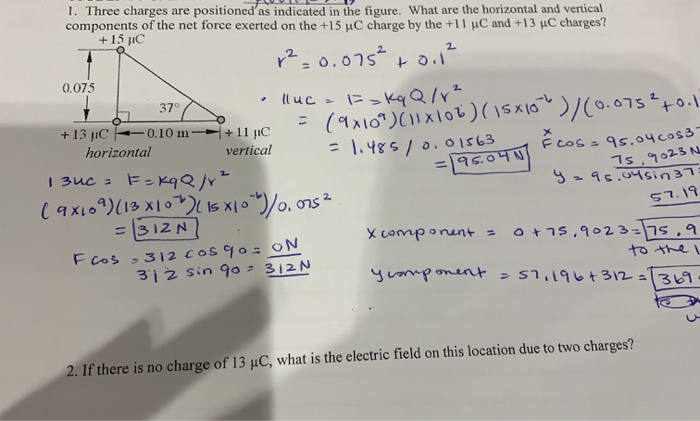 1. Three charges are positioned as indicated in the figure. What are the horizontal and vertical
components of the net force exerted on the +15 μC charge by the +11 μC and +13 μC charges?
+15 μC
r² = 0.075² + 0.1²
0.075
37°
+13 μC 0.10 m +11 μC
horizontal vertical
• 11uc = F = KqQ/r²
= (9x10⁹)(11x10⁻⁶)(15x10⁻⁶)/(0.075²+0.1
= 1.485/0.01563
= 95.04N
x
F cos = 95.04cos3
75.9023N
y = 95.04sin37
57.19
13uc = F=KqQ/r²
(9x10⁹)(13x10⁻⁶)(15x10⁻⁶)/0.075²
= 312N
F cos = 312 cos 90 = 0N
312 sin 90 = 312N
x component = 0+75.9023=75.9
to the
y component = 57.196+312 = 369
2. If there is no charge of 13 μC, what is the electric field on this location due to two charges?